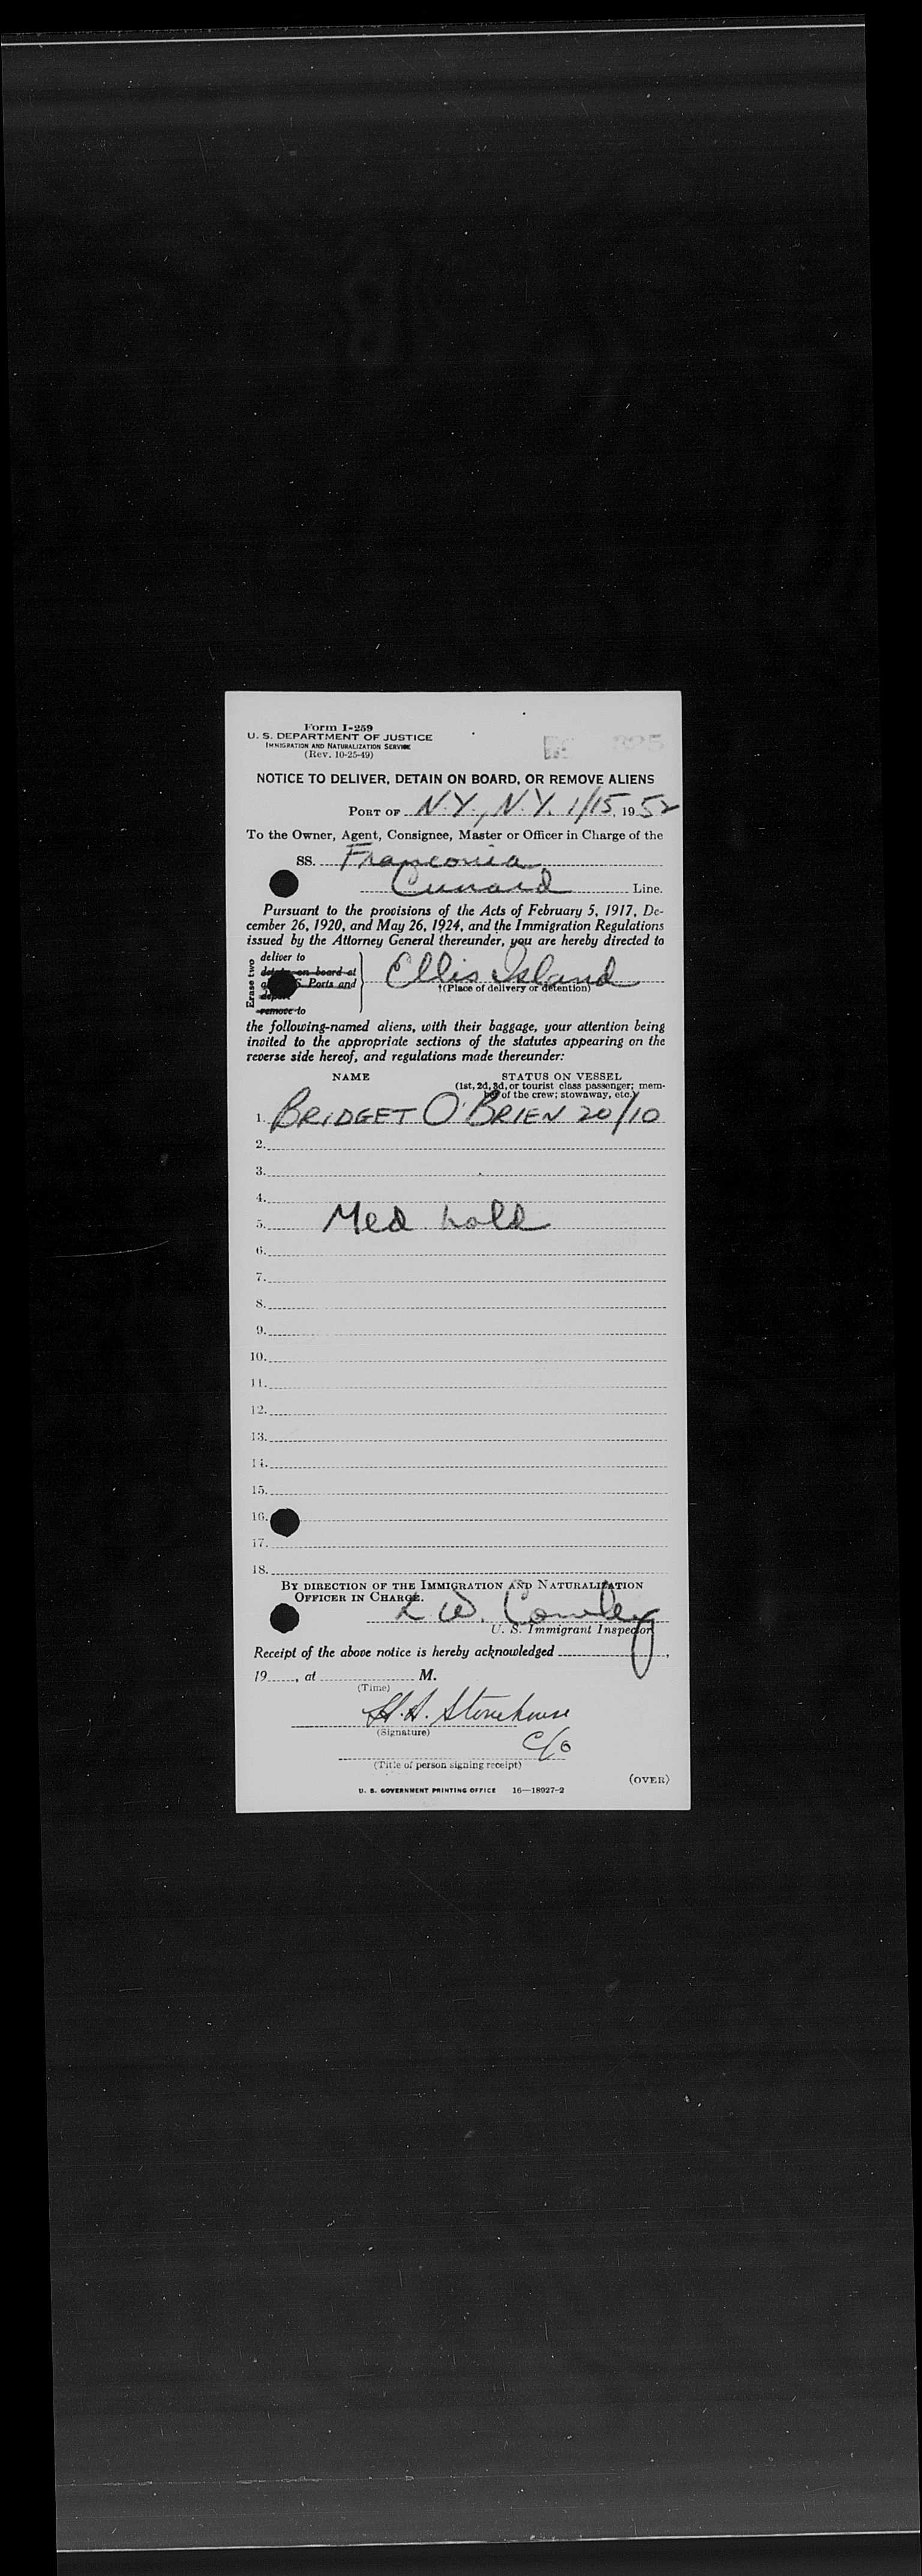 Form I-259
U. S. DEPARTMENT OF JUSTICE
IMMIGRATION AND NATURALIZATION SERVICE
(Rev. 10-25-49)
325
NOTICE TO DELIVER, DETAIN ON BOARD, OR REMOVE ALIENS
PORT OF N.Y., N.Y. 1/15, 1952
To the Owner, Agent, Consignee, Master or Officer in Charge of the
SS. Franconia
Cunard Line.
Pursuant to the provisions of the Acts of February 5, 1917, De-
cember 26, 1920, and May 26, 1924, and the Immigration Regulations
issued by the Attorney General thereunder, you are hereby directed to
Erase two
deliver to
detain on board at
Ports and
remove to
Ellis Island
(Place of delivery or detention)
the following-named aliens, with their baggage, your attention being
invited to the appropriate sections of the statutes appearing on the
reverse side hereof, and regulations made thereunder:
NAME STATUS ON VESSEL
(1st, 2d, 3d, or tourist class passenger; mem-
ber of the crew; stowaway, etc.)
1. BRIDGET O'BRIEN 20/10
2.
3.
4.
5. Med hold
6.
7.
8.
9.
10.
11.
12.
13.
14.
15.
16.
17.
18.
BY DIRECTION OF THE IMMIGRATION AND NATURALIZATION
OFFICER IN CHARGE.
L W. Conley
U. S. Immigrant Inspector
Receipt of the above notice is hereby acknowledged
19, at M.
(Time)
H. A. Stonehouse
(Signature)
C/O
(Title of person signing receipt)
(OVER)
U. S. GOVERNMENT PRINTING OFFICE 16—18927-2